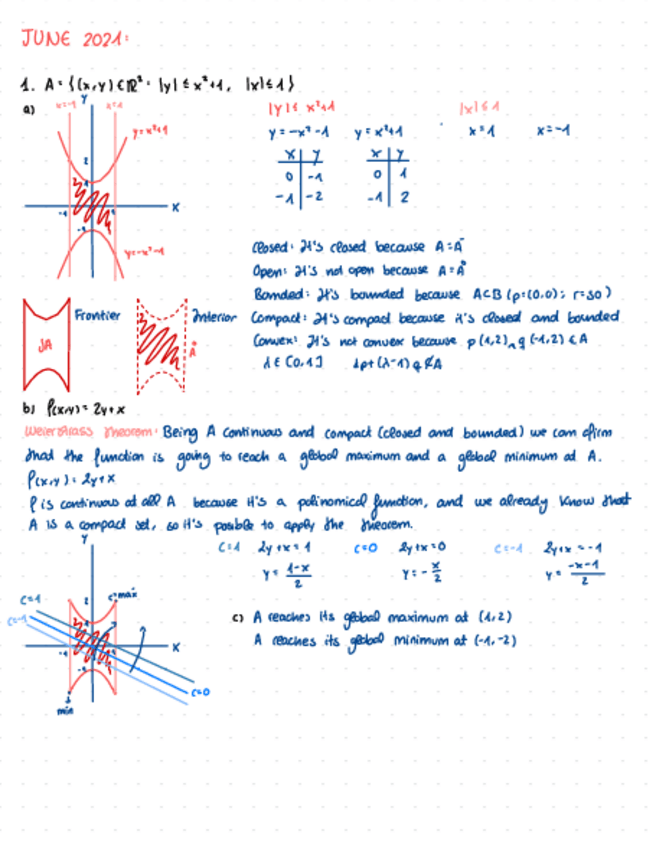 JUNE 2021:
1. A = {(x,y) ∈ ℝ² : |y| ≤ x²+1, |x| ≤ 1}
a)
x=-1 y x=1
y=x²+1
2
-1
x
y=-x²-1
|y| ≤ x²+1 |x| ≤ 1
y = -x²-1 y = x²+1 x=1 x=-1
x | y x | y
0 | -1 0 | 1
-1 | -2 -1 | 2
Closed: It's closed because A=Ā
Open: It's not open because A=Å
Bounded: It's bounded because A⊂B (p=(0,0); r=50)
Compact: It's compact because it's closed and bounded
Convex: It's not convex because p(1,2) ∧ q(-1,2) ∈ A
λ ∈ [0,1] λp+(λ-1)q ∉ A
Frontier
∂A
Interior
Å
b) f(x,y) = 2y+x
Weierstrass Theorem: Being A continuous and compact (closed and bounded) we can afirm
that the function is going to reach a global maximum and a global minimum at A.
f(x,y) = 2y+x
f is continuous at all A because it's a polinomical function, and we already know that
A is a compact set, so it's posible to apply the theorem.
C=1 2y+x=1 C=0 2y+x=0 C=-1 2y+x=-1
y = 1-x/2 y = -x/2 y = -x-1/2
y
C=1
C=-1
2
max
-1
x
C=0
min
c) A reaches its global maximum at (1,2)
A reaches its global minimum at (-1,-2)